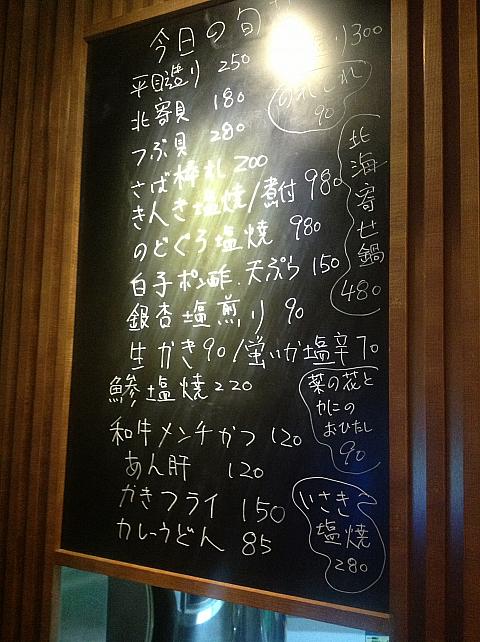 今日の旬
平目造り 250
北寄貝 180
つぶ貝 280
さば棒札 200
きんき塩焼/煮付 980
のどぐろ塩焼 980
白子ポン酢.天ぷら 150
銀杏塩煎り 90
生かき90/蛍いか塩辛70
鯵塩焼220
和牛メンチかつ 120
あん肝 120
かきフライ 150
カレーうどん 85
造り300
のれそれ
90
北海寄せ鍋
480
菜の花と
かにの
おひたし
90
いさき
塩焼
280